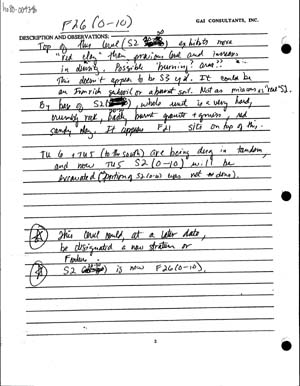 F26 (0-10)
GAI CONSULTANTS, INC.
DESCRIPTION AND OBSERVATIONS:
Top of this level (S2) exhibits more
"red clay" than previous level and increases
in density. Possible "burning" area??
This doesn't appear to be S3 yet. It could be
an or a burnt soil. Not as as "real" S2.
By base of S2 whole unit is a very hard,
crumbly rock, badly burnt granite + gneiss, red
sandy clay. It appears F21 sits on top of this.
TU 6 + TU5 (to the south) are being dug in tandem,
and now TU5 S2 (0-10) will be
excavated (portion of S2 was not done).
This level could, at a later date,
be designated a new stratum or
Feature.
S2 is now F26 (0-10).